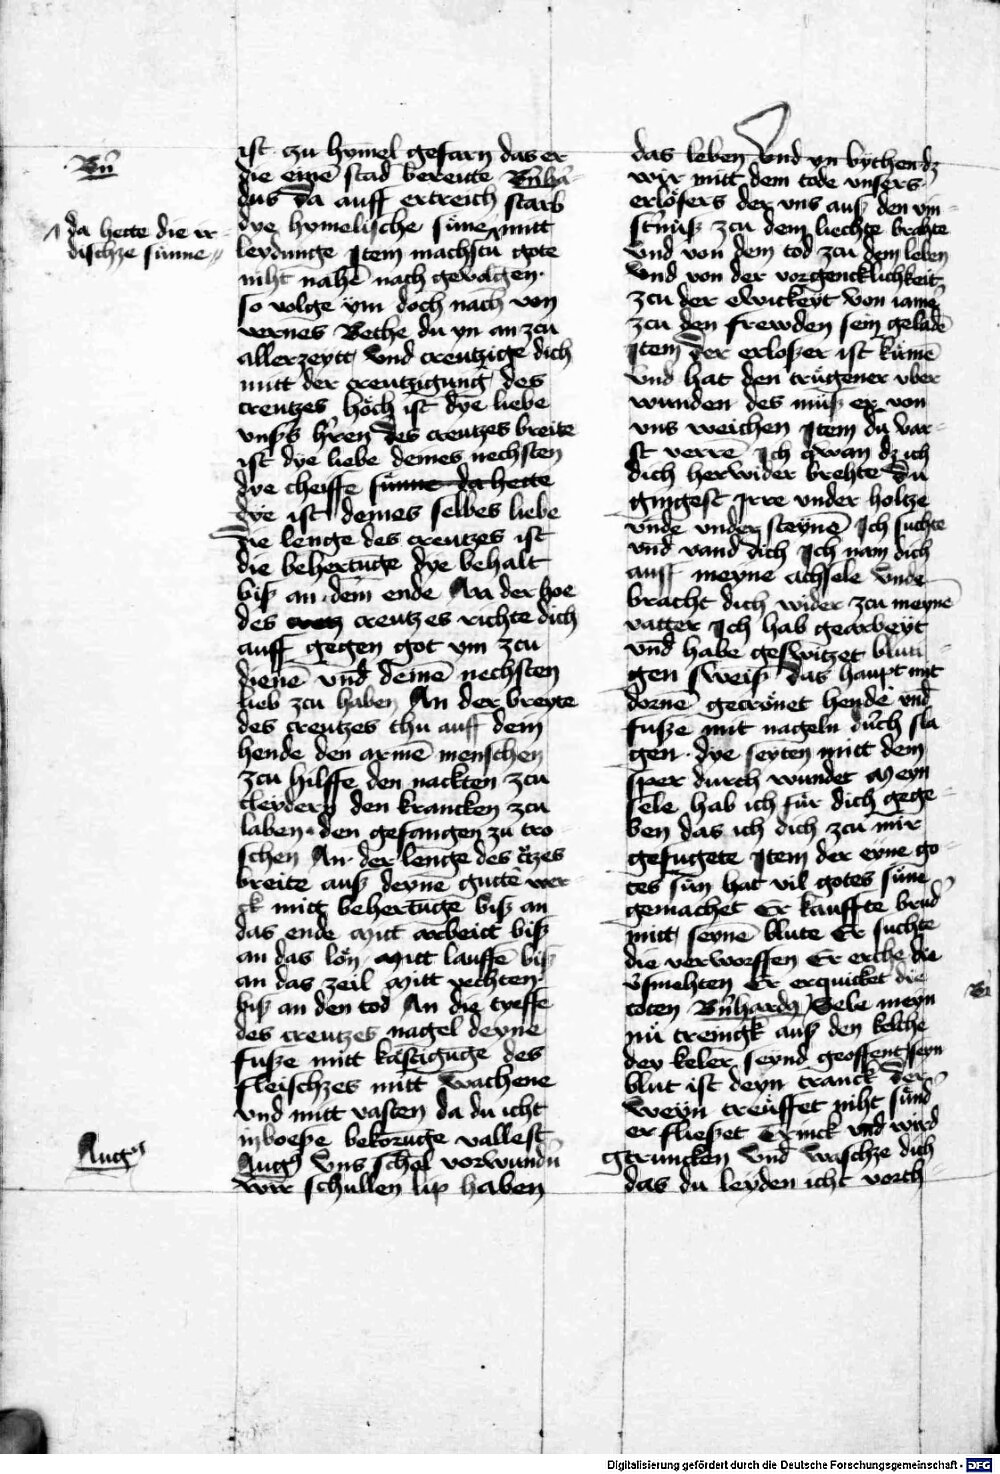 Bn̄
da hette die ir-
dischze sunne
Augꝰ
ist zu hymel gefarn das er
die eine stad bereitte Bn̄ha-
dus Da auff ertreich starb
dye hymelische sune mitt
leydunge Item machstu gote
niht nahē nach gevolgen
so volge ym doch nach von
vernes Bethe du yn an zcu
allerzeytt Und creutzige dich
mitt der creutzigung des
creutzes hoͤch ist dye liebe
unsers hren Des creutzes breite
ist dye liebe deines nechsten
dye theiffe sunne da hette
dye ist deines selbes liebe
Die lenge des creutzes ist
die behertūge dye behalt
biß an dem ende An der hoe
des cretz creutzes richte dich
auff gegen got vm zcu
dienē vnd deinē nechsten
lieb zcu haben An der breyte
des creutzes thu auff dein
hende den armē menschen
zcu hilffe den nackten zcu
cleydern den krancken zcu
laben den gefangen zu tro
schen An der lenge des c̄tzes
breite auß deyne gutte wer-
ck mitt behertūge biß an
das ende Mitt arbeitt biß
an das lon Mitt lauffē biß
an das zeil Mitt vechten
biß an den tod An die tyeffe
des creutzes nagel deyne
fusze mitt kastigūge des
fleischzes mitt Wachene
und mitt vasten da du icht
in boese bekorūge vallest
Augꝰ Uns schel vorwundū
wir schullen lip haben
das leben Und vn bythen dz
wyr mitt dem tode unsers
erlosers der uns auß den vin-
sternuß zcu dem liechte brahte
Und von dem tod zcu dem leben
Und von der vorgencklichkeit
zcu der ewickeyt Von iamē
zcu den frewden sein geladē
Item Der erloszer ist kumē
Und hat den trugener vber
wunden des muß er von
uns weichen Item du var-
st verrē Ich qwan dz ich
dich herwider brehte Du
gingest Irre under holtze
unde under steynē Ich suchte
und vand dich Ich nam dich
auff meyne achsele Unde
bracht dich wider zcu meynē
vatter Ich hab gearbeyt
und habe geswitzet bluti-
gen sweiß Das haupt mit
dornē gecronet hende und
fusze mit nageln durch sla
gen dye seyten mitt dem
sper durch wundet Meyn
sele hab ich fur dich gege-
ben das ich dich zcu mir
gefugete Item der eyne go-
tes sun hat vil gotes sune
gemachet Er kauffte brud
mitt seynē blute Er suchte
die verworffen Er erche die
v̄smehten Er erquicket die
toten Bn̄hardꝰ Sele meyn
nu treingk auß den kelche
dey keler seynd geoffent seyn
blut ist deyn tranck Der
weyn treuffet niht sund
er flieszet Trinck und wird
getruncken Und waschze dich
das du leyden icht vorch
Bn
Digitalisierung gefördert durch die Deutsche Forschungsgemeinschaft - DFG